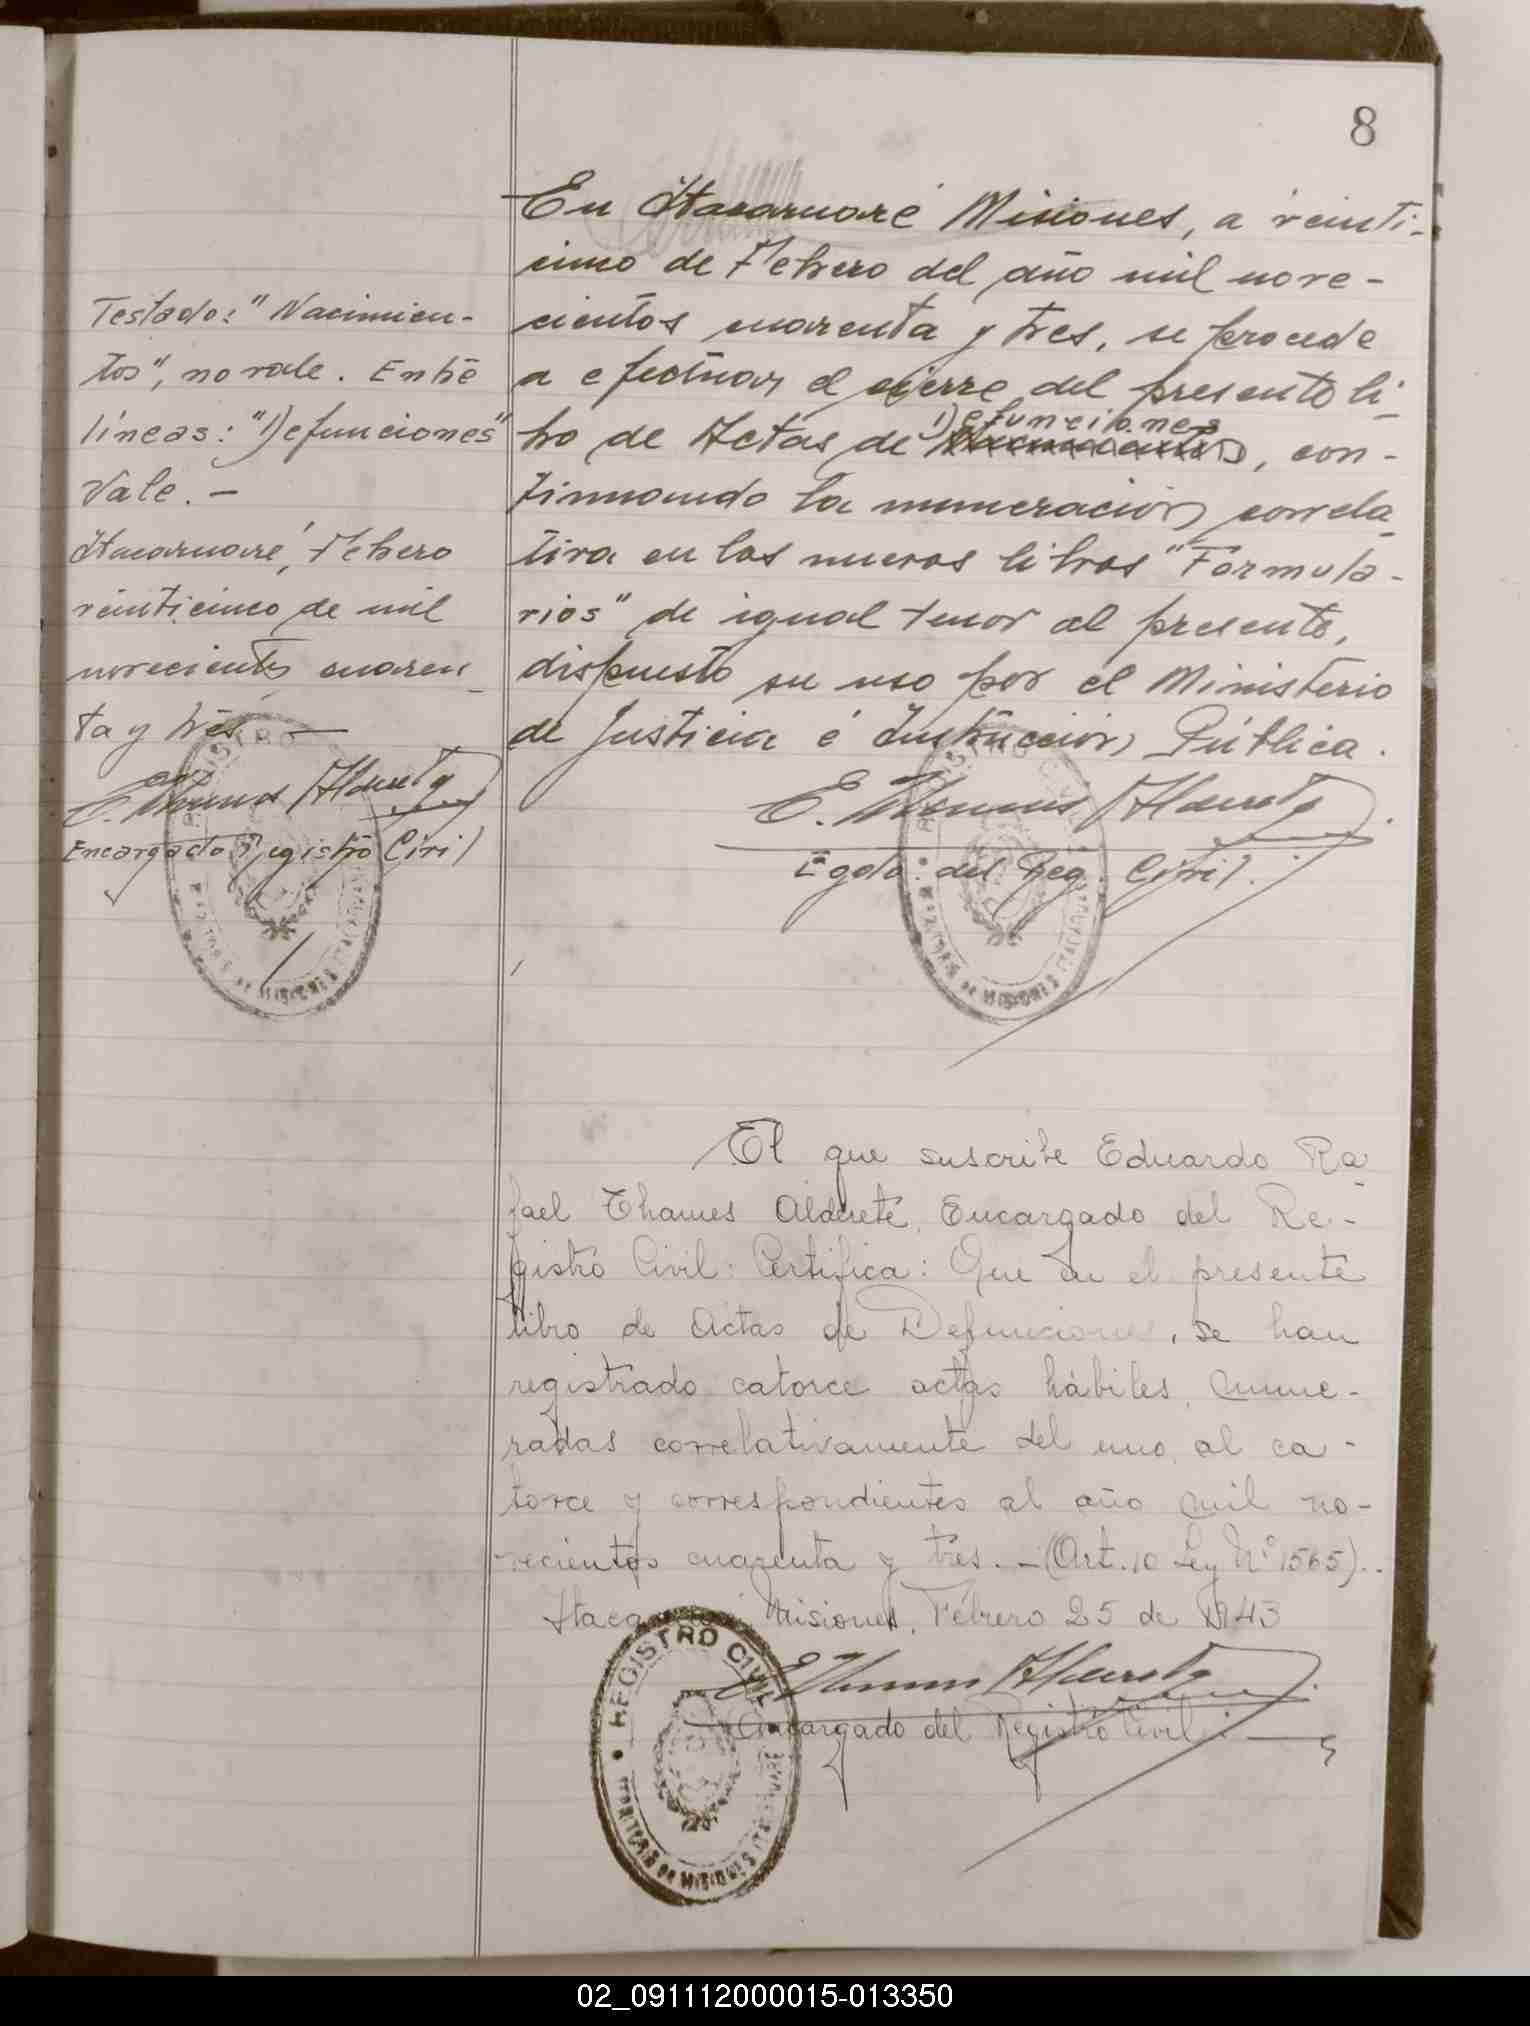 8
En Itacaruaré Misiones, a veinti-
cinco de Febrero del año mil nove-
cientos cuarenta y tres, se procede
a efectuar el cierre del presente li-
bro de Actas de Defunciones, con-
tinuando la numeración correla-
tiva en los nuevos libros "Formula-
rios" de igual tenor al presente,
dispuesto su uso por el Ministerio
de Justicia é Instrucción Pública.
E. Thames Alderete
Egdo. del Reg. Civil.
Testado: "Nacimien-
tos", no vale. Entre
líneas: "Defunciones"
Vale. —
Itacaruaré, Febrero
veinticinco de mil
novecientos cuaren-
ta y tres —
E. Thames Alderete
Encargado Registro Civil
REGISTRO CIVIL
MISIONES ITACARUARE
El que suscribe Eduardo Ra-
fael Thames Alderete, Encargado del Re-
gistro Civil: Certifica: Que en el presente
libro de Actas de Defunciones, se han
registrado catorce actas hábiles, enume-
radas correlativamente del uno al ca-
torce y correspondientes al año mil no-
vecientos cuarenta y tres. — (Art. 10 Ley Nº 1565).
Itacaruaré Misiones, Febrero 25 de 1943
E. Thames Alderete
Encargado del Registro Civil
REGISTRO CIVIL
DE MISIONES ITACARUARE
02_091112000015-013350